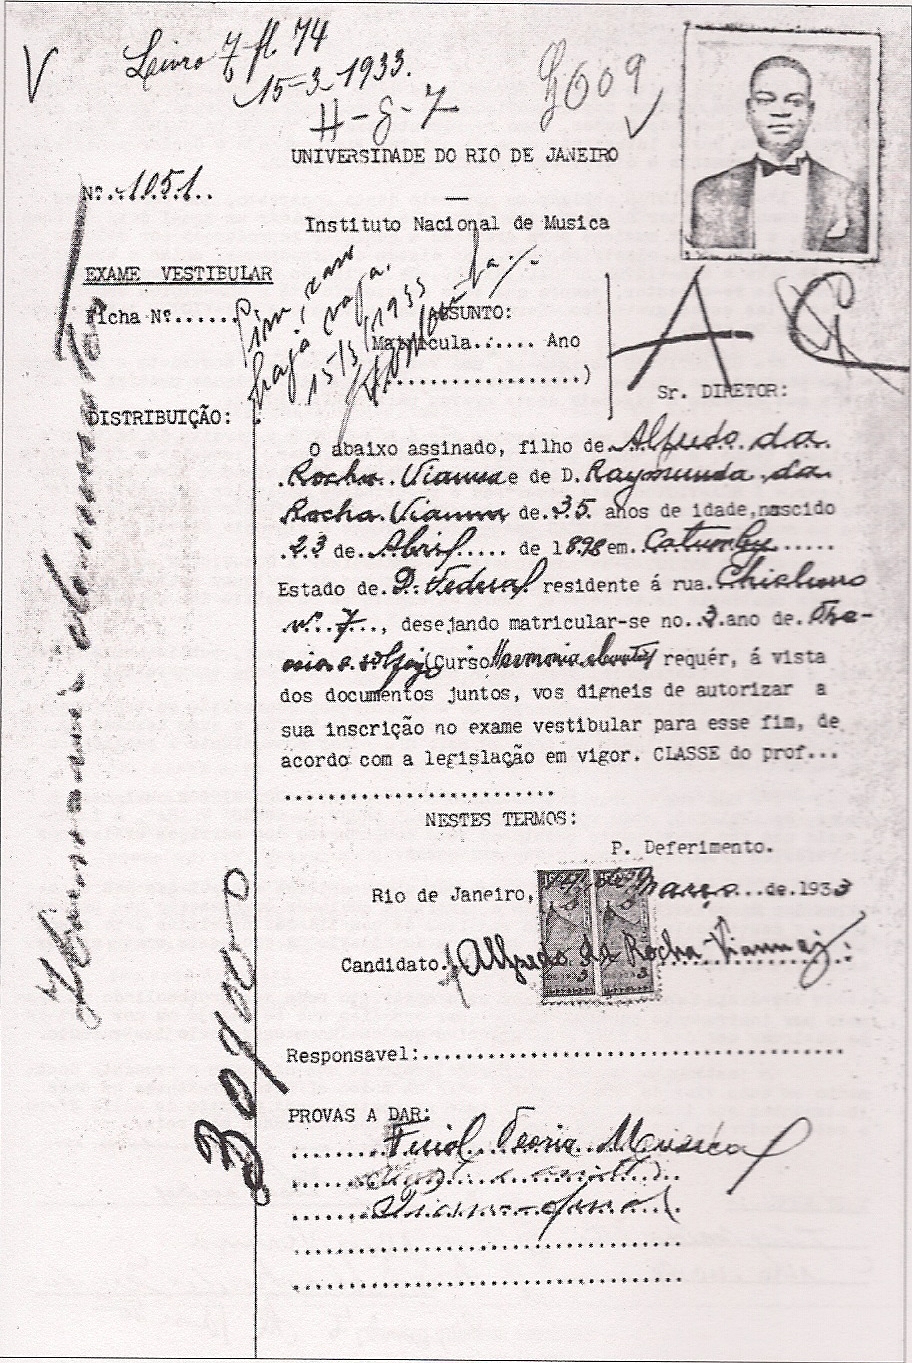 V
Livro 7 fl 74
15-3-1933.
H-8-7
UNIVERSIDADE DO RIO DE JANEIRO
Nº..1051..
Instituto Nacional de Musica
EXAME VESTIBULAR
Ficha Nº......
Sim, caso
haja vaga.
15/3/1933
ASSUNTO:
Matricula...... Ano
(..................)
A
Sr. DIRETOR:
DISTRIBUIÇÃO:
O abaixo assinado, filho de Alfredo da
Rocha Vianna e de D. Raymunda da
Rocha Vianna de 35 anos de idade, nascido
23 de Abril..... de 1898 em Catumby......
Estado de D. Federal residente á rua
nº 7..., desejando matricular-se no 3 ano de Theo-
ria e solfejo (Curso Harmonia requér, á vista
dos documentos juntos, vos digneis de autorizar a
sua inscrição no exame vestibular para esse fim, de
acordo com a legislação em vigor. CLASSE do prof...
........................
NESTES TERMOS:
P. Deferimento.
Rio de Janeiro, 14 de Março...de 1933
Candidato. Alfredo da Rocha Vianna Jor
Responsavel:......................................
PROVAS A DAR:
Theoria Musical